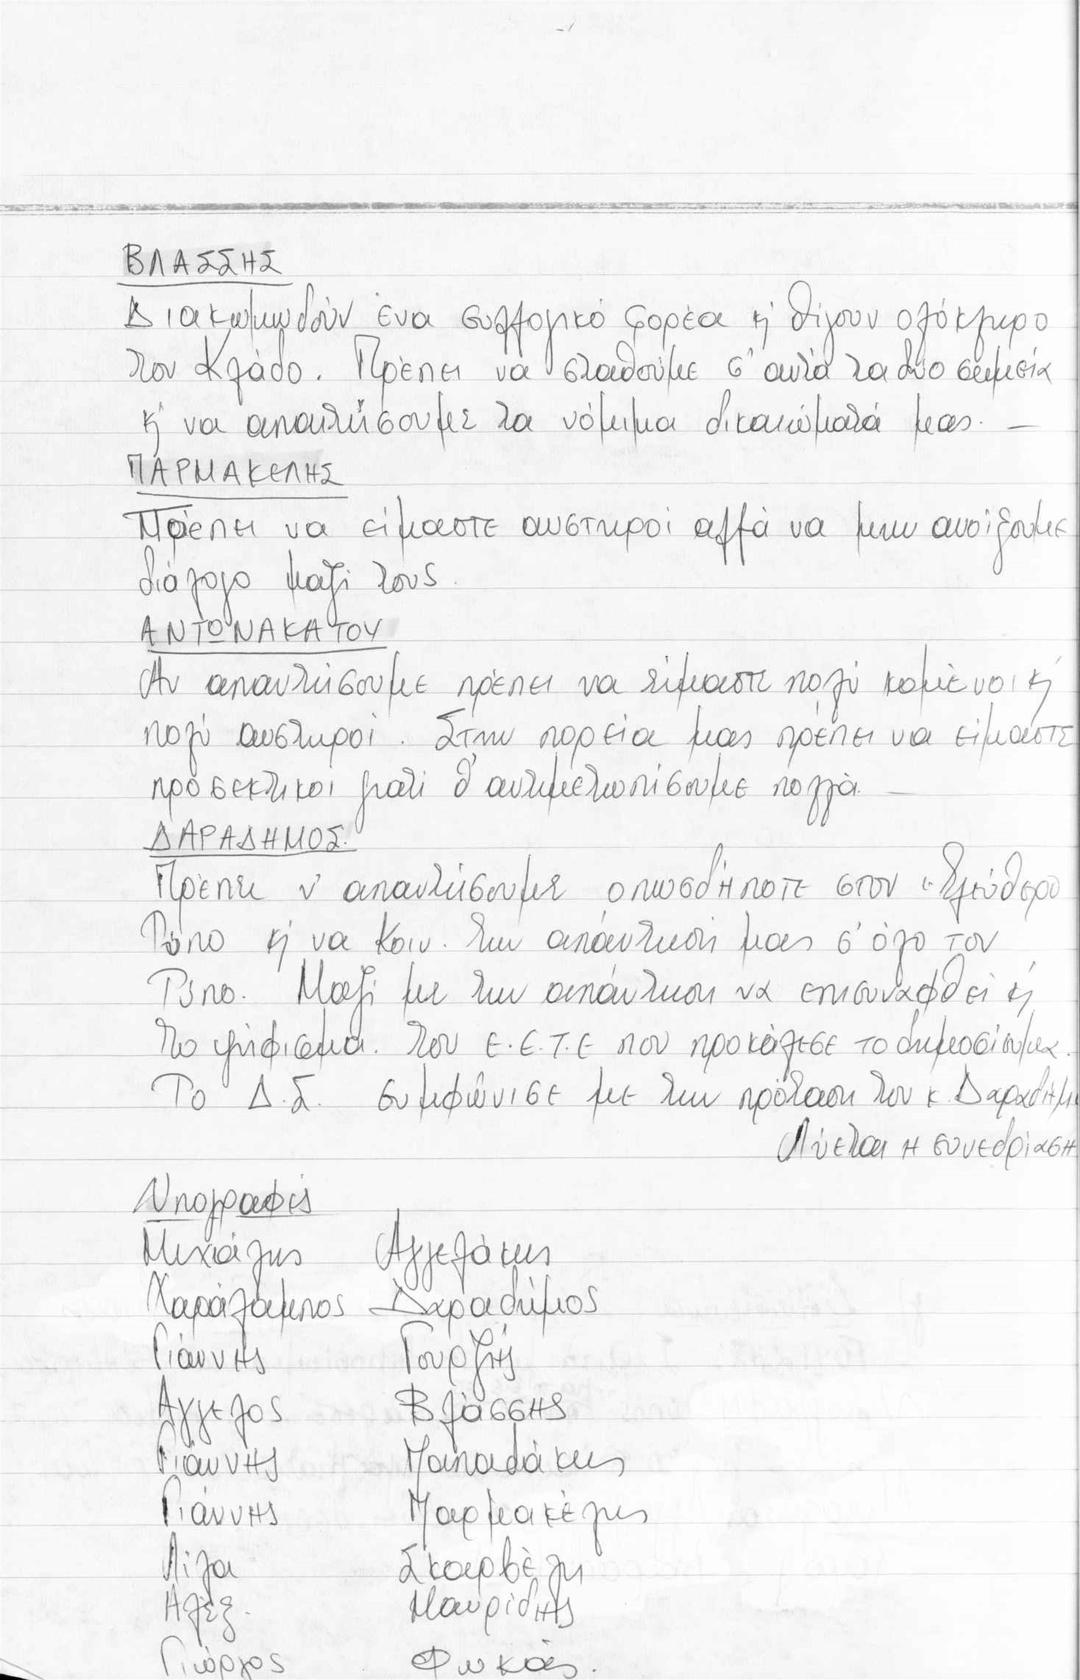 ΒΛΑΣΣΗΣ
Διακωμωδούν ένα συλλογικό φορέα κ' θίγουν ολόκληρο
τον Κλάδο. Πρέπει να σταθούμε σ' αυτά τα δύο σημεία
κ' να απαιτήσουμε τα νόμιμα δικαιώματά μας. —
ΠΑΡΜΑΚΕΛΗΣ
Πρέπει να είμαστε αυστηροί αλλά να μην ανοίξουμε
διάλογο μαζί τους.
ΑΝΤΩΝΑΚΑΤΟΥ
Αν απαντήσουμε πρέπει να είμαστε πολύ κομένοι κ'
πολύ αυστηροί. Στην πορεία μας πρέπει να είμαστε
προσεκτικοί γιατί θ' αντιμετωπίσουμε πολλά. —
ΔΑΡΑΔΗΜΟΣ.
Πρέπει ν' απαντήσουμε οπωσδήποτε στον "Ελεύθερο
Τύπο κ' να Κοιν. την απάντησή μας σ' όλο τον
Τύπο. Μαζί με την απάντηση να επισυναφθεί κ'
το ψήφισμα. του Ε.Ε.Τ.Ε που προκάλεσε το δημοσίευμα.
Το Δ.Σ. συμφώνισε με την πρόταση του κ. Δαραδήμ
Λύεται η συνεδρίαση
Υπογραφές
Μιχάλης Αγγελάκης
Χαράλαμπος Δαραδήμος
Γιάννης Γουρζής
Άγγελος Βλάσσης
Γιάννης Παπαδάκης
Γιάννης Παρμακέλης
Λίλα Σκαρβέλη
Αλέξ. Μαυρίδης
Γιώργος Φωκάς.